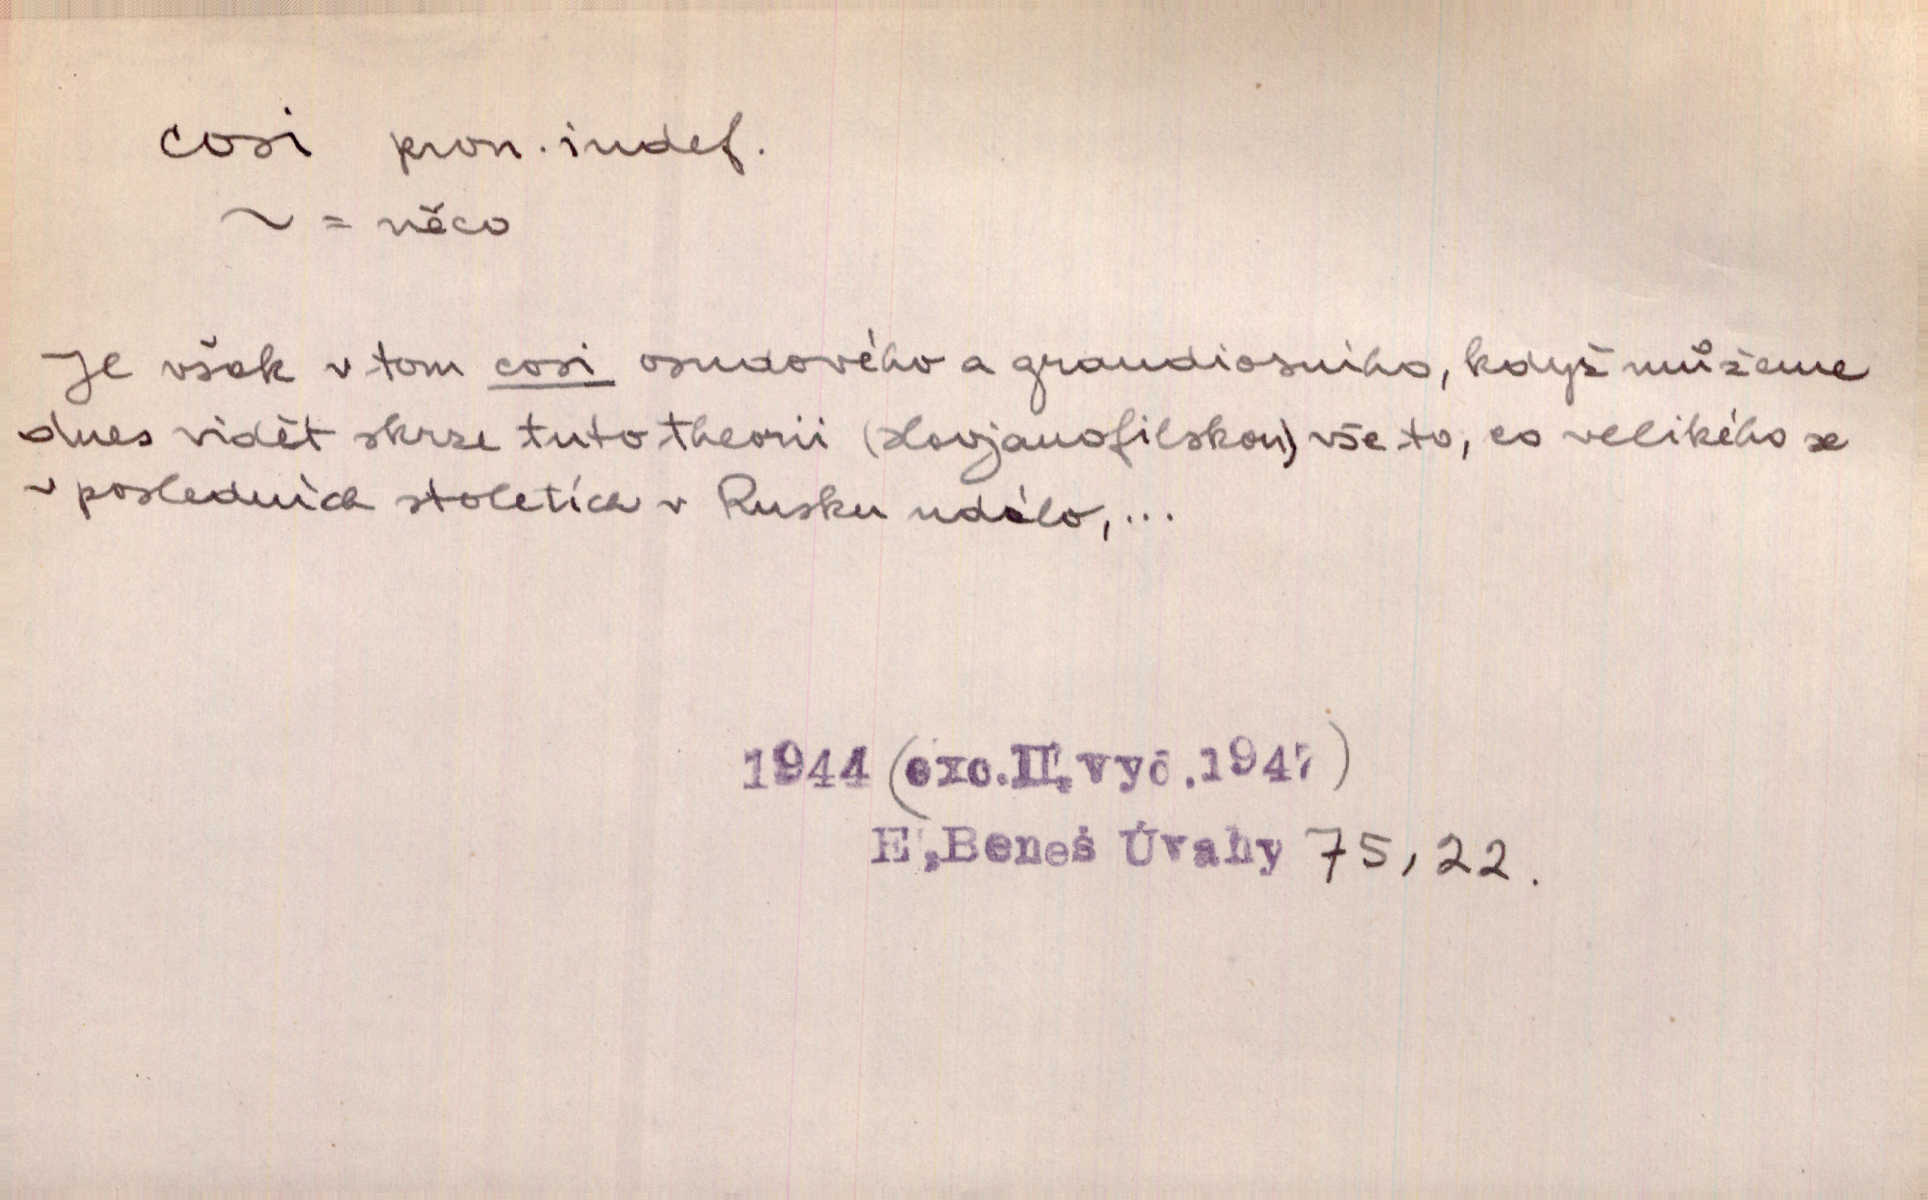 cosi pron. indef.
~ = něco
Je však v tom cosi osudového a grandiosního, když můžeme
dnes vidět skrze tuto theorii (slovjanofilskou) vše to, co velikého se
v posledních stoletích v Rusku událo, ...
1944 (exc. II. vyd. 1947)
E. Beneš Úvahy 75, 22.